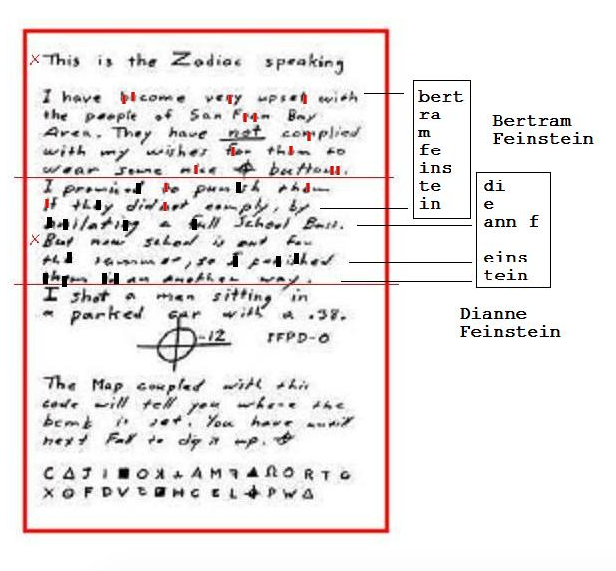 This is the Zodiac speaking
I have become very upset with
the people of San Fran Bay
Area. They have not complied
with my wishes for them to
wear some nice ⌖ buttons.
I promised to punish them
if they did not comply, by
anilating a full School Buss.
But now school is out for
the summer, so I punished
them in an another way.
I shot a man sitting in
a parked car with a .38.
⌖-12 SFPD-0
The Map coupled with this
code will tell you where the
bomb is set. You have untill
next Fall to dig it up. ⌖
C Δ J I ■ O A M ▲ Ω O R T G
X F D V H C E L ⌖ P W Δ
bert
ra
m
fe
ins
te
in
Bertram
Feinstein
di
e
ann f
eins
tein
Dianne
Feinstein